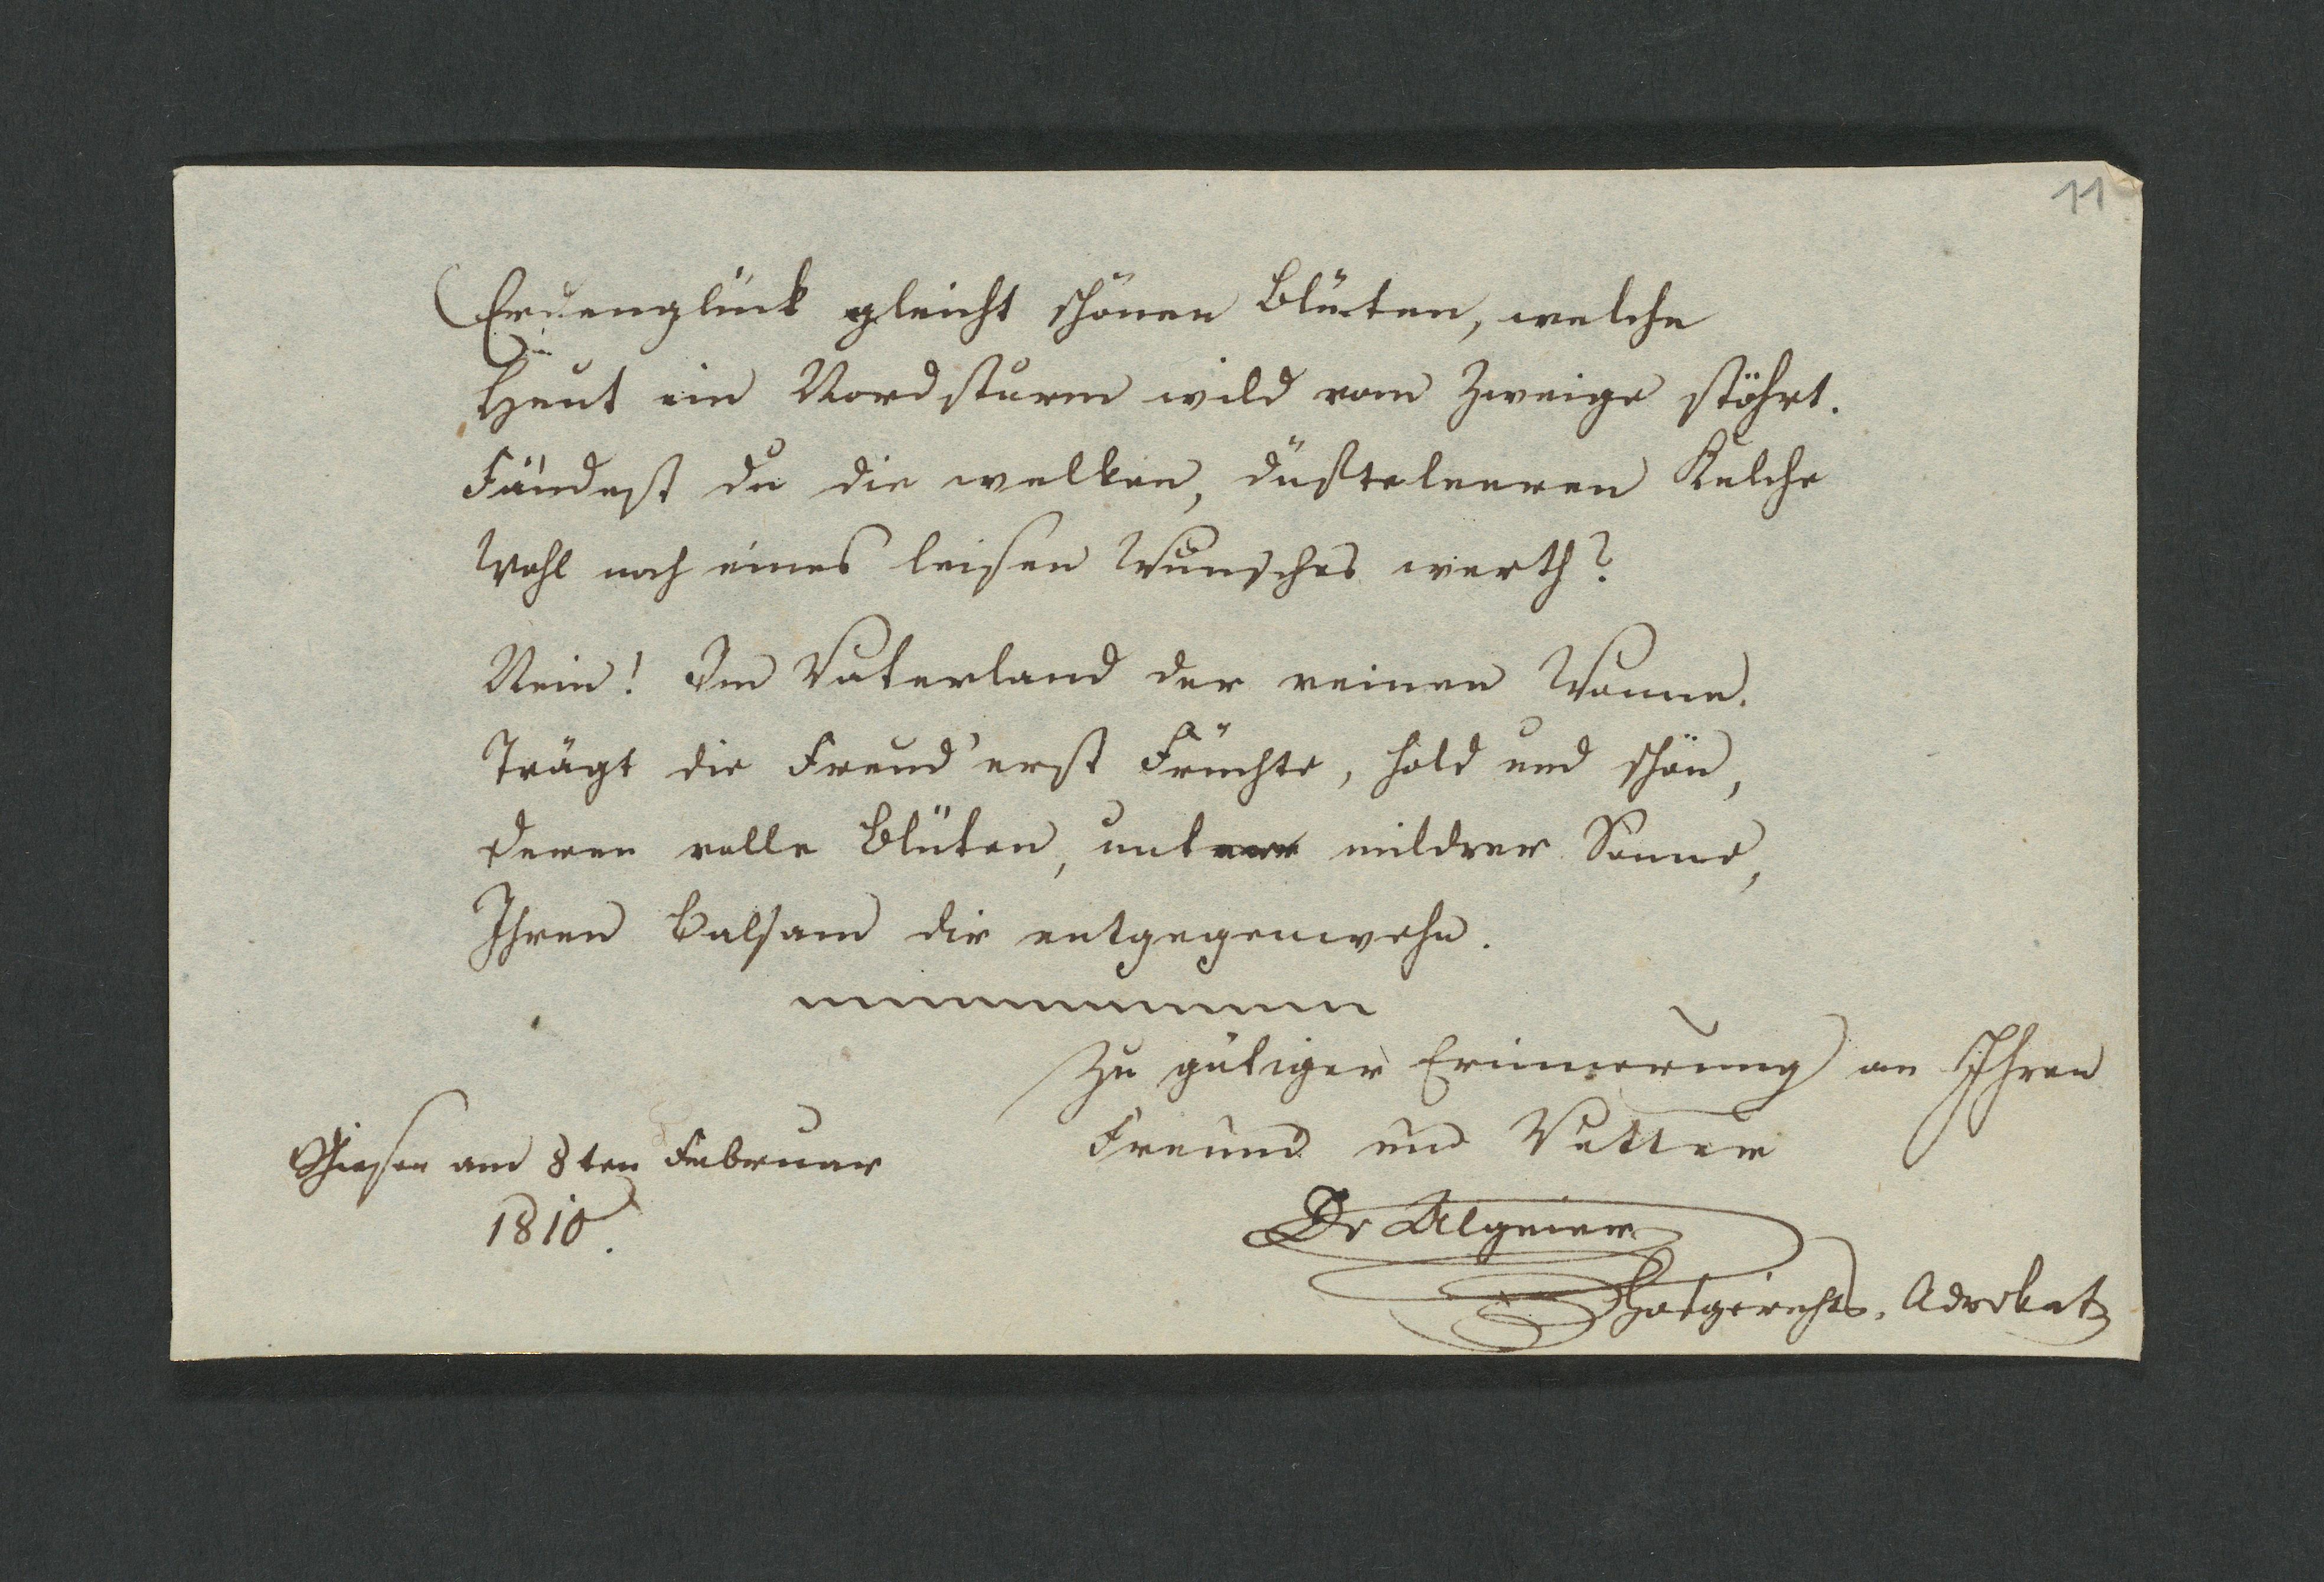 11
Erdenglück gleicht schönen Blüten, welche
Heut ein Nordsturm wild vom Zweige stöhrt.
Fändest du die welken, düfteleeren Kelche
Wohl noch eines leisen Wunsches werth?
Nein! Im Vaterland der reinen Wonne.
Trägt die Freud' erst Früchte, hold und schön,
Deren volle Blüten, unter mildrer Sonne,
Ihren Balsam dir entgegenwehn.
Zu gütiger Erinnerung an Ihren
Freund und Vetter
Giesen am 8ten Februar
1810.
Dr Algeier
Hofgerichts. Advokat